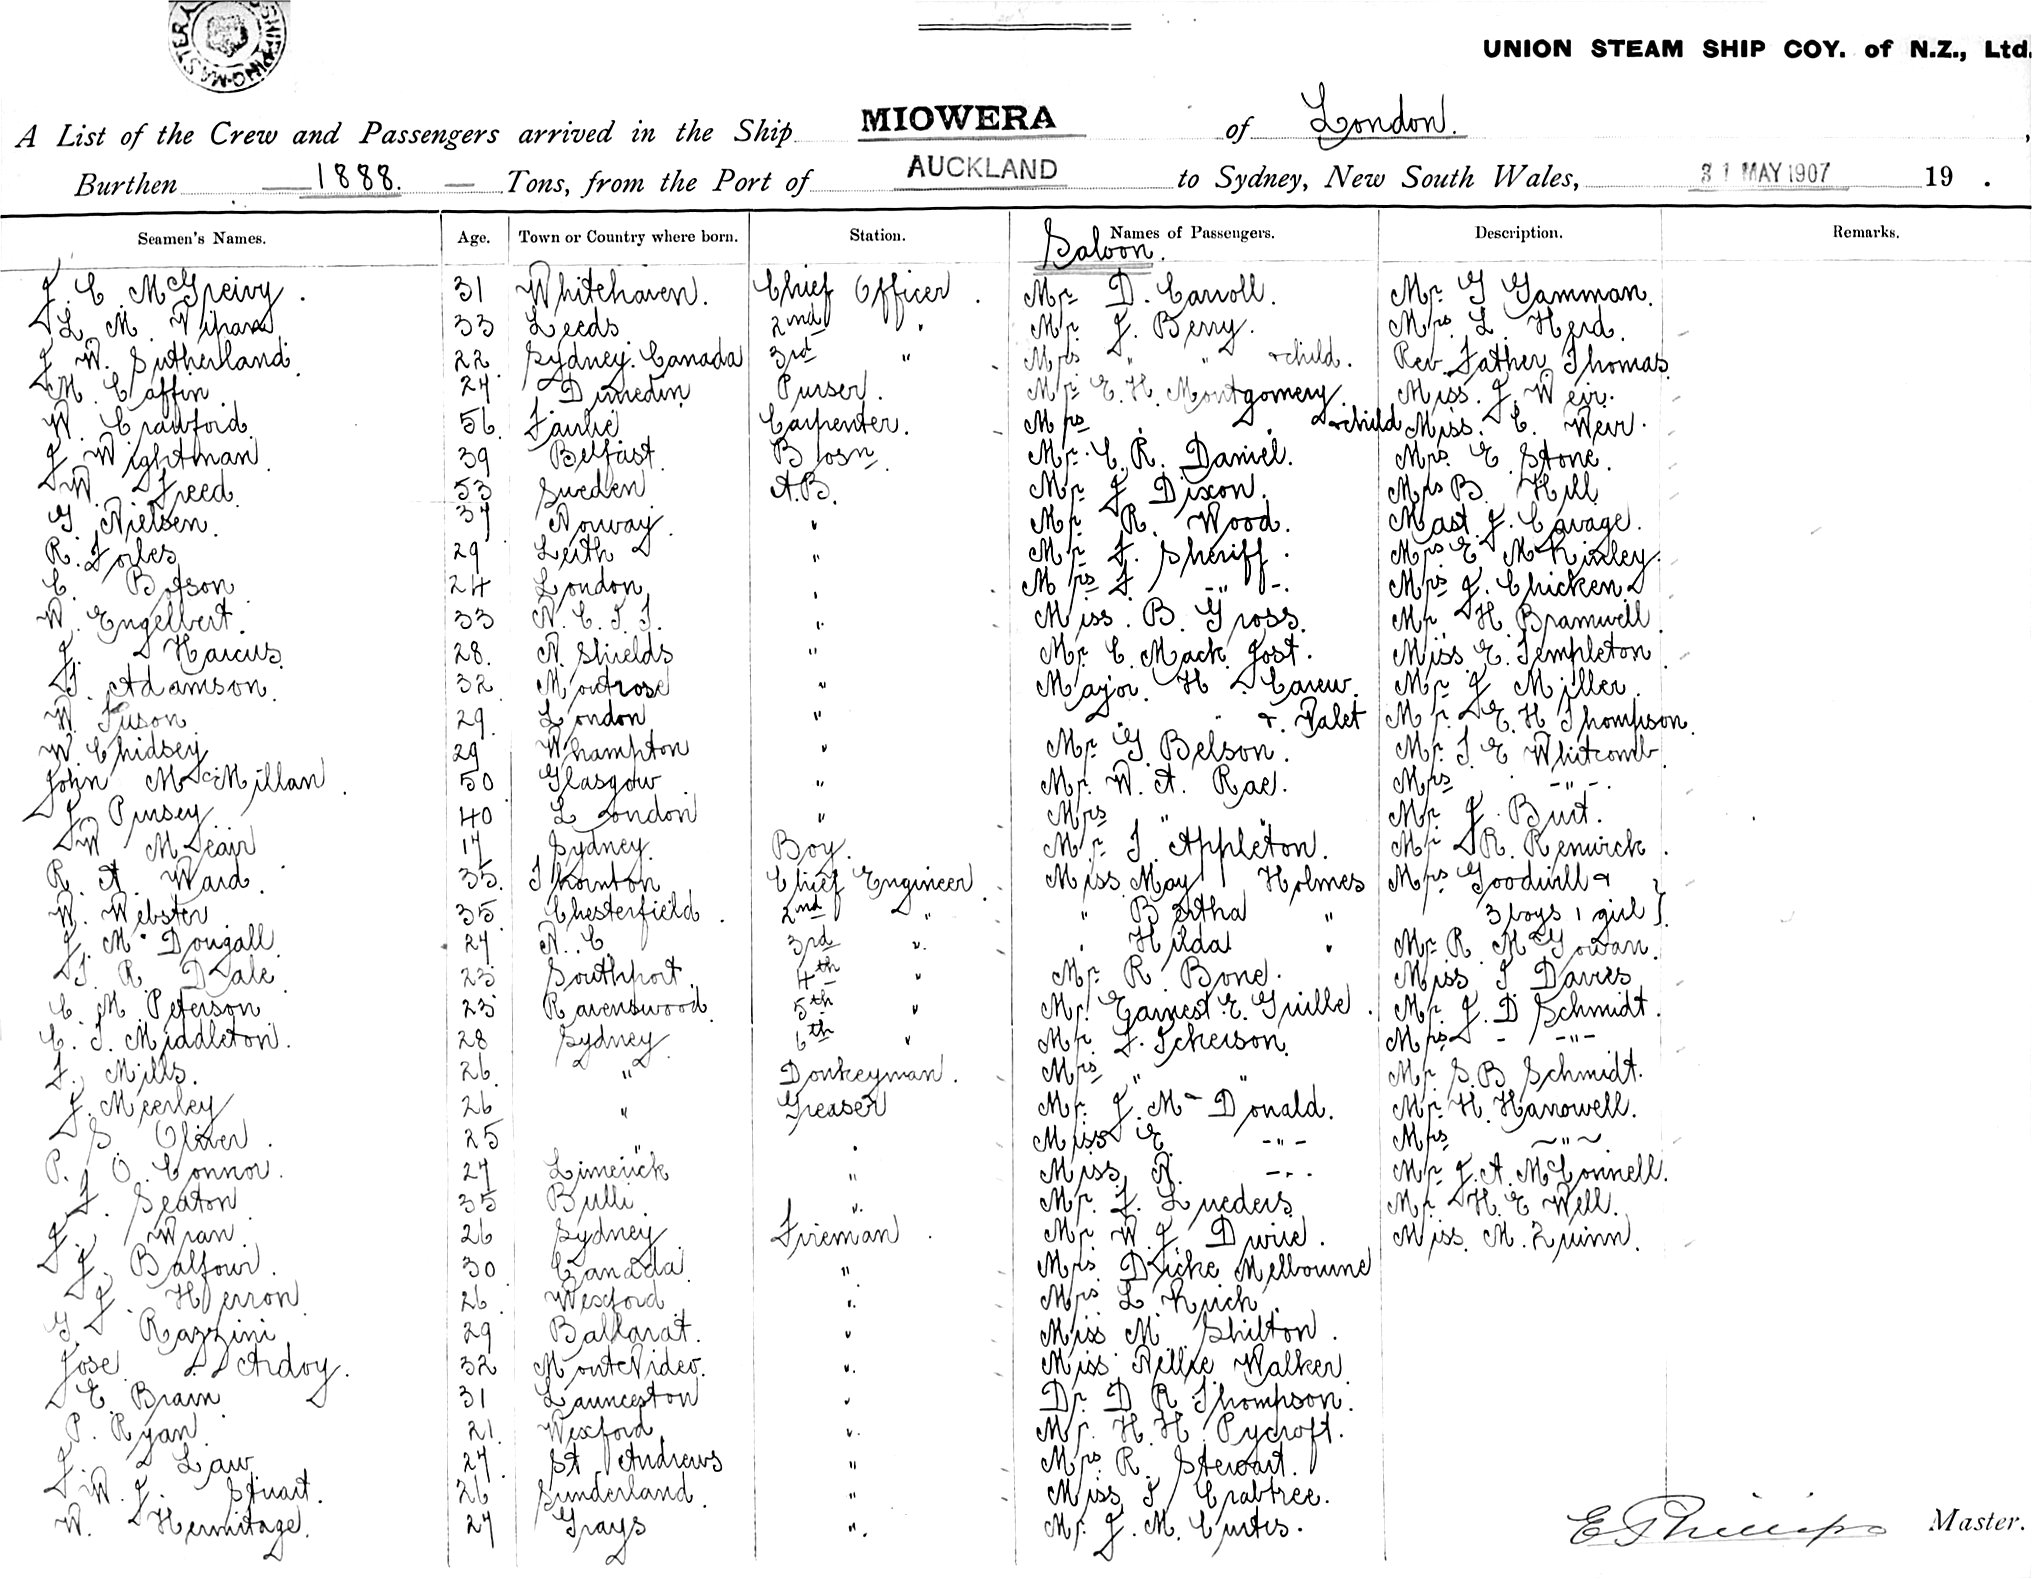 SHIPPING MASTER
UNION STEAM SHIP COY. of N.Z., Ltd.
A List of the Crew and Passengers arrived in the Ship MIOWERA of London.
Burthen 1888. Tons, from the Port of AUCKLAND to Sydney, New South Wales, 31 MAY 1907 19 .
Seamen's Names. Age. Town or Country where born. Station. Names of Passengers. Description. Remarks.
Saloon.
J. C. McGreivy. 31 Whitehaven. Chief Officer. Mr D. Carroll. Mr. G Gamman.
L. M. 33 Leeds 2nd " Mr. J. Berry. Mrs L. Herd.
J. W. Sutherland. 22 Sydney. Canada 3rd " Mrs " " & child. Rev. Father Thomas
M. Caffin. 27 Dunedin Purser. Mr. E. H. Montgomery. Miss. J. Weir.
W. Crawford. 56. Fairlie Carpenter. Mrs " & child Miss. C. Weir.
J. Wightman. 39 Belfast. Bosn. Mr. C. R. Daniel. Mrs. E. Stone.
W. Freed. 53 Sweden A.B. Mr. J Dixon. Mrs B. Hill
G. Nielsen. 37 Norway. " Mr. R. Wood. Mast. J. Cavage.
R. Forbes 29 Leith " Mr. F. Sheriff. Mrs E. McKinley.
C. Botson 24 London " Mrs F. -"- Mrs J. Chicken
W. Engelbert. 33 " Miss. B. Gross. Mr. H. Bramwell
J. Harcus. 28. N. Shields " Mr. C. Mack. Jost. Miss E. Templeton
T. Adamson. 32 Montrose " Major. H. Carew. Mr. J. Miller.
W. Tuson 29. London " " " & Valet Mr. E. H. Thompson.
W. Chidsey 29 Whampton " Mr. G. Belson. Mr. T. E. Whitcomb
John McMillan. 50 Glasgow " Mr. W. A. Rae. Mrs -"-
J. Pursey. 40 London " Mrs " " Mr. J. Burt.
W. McLair 17 Sydney. Boy. Mr. T. Appleton. Mr R. Renwick.
R. A. Ward. 35. Thornton Chief Engineer. Miss May Holmes Mrs Goodwill &
W. Webster 35 Chesterfield. 2nd " " Bertha " 3 boys 1 girl }
J. McDougall 27 N. C. 3rd " " Hilda " Mr. R. McGowan.
T. R. Dale 23 Southport. 4th " Mr. R. Bone. Miss T. Davies
C. M. Peterson 23 Ravenswood 5th " Mr. Earnest. E. Guille. Mr. J. D Schmidt.
C. T. Middleton. 28 Sydney 6th " Mr. F. Ickerson. Mrs - -"-
F. Mills. 26. " Donkeyman. Mrs " " Mr. S. B Schmidt.
J. Meerley 26 " Greaser Mr. J. McDonald. Mr. H. Hanowell.
S Oliver. 25 " " Miss E. -"- Mrs -"-
P. O'Connor. 27 Limerick " Miss R. -"- Mr. J. A. McConnell.
F. Seaton 35 Bulli " Mr. F. Lueders Mr. H. E. Well.
J. Wran. 26 Sydney Fireman. Mr W. J Durie. Miss. M. Quinn.
J. Balfour. 30 Canada. " Mrs. Dicke Melbourne
J. Herron. 26 Wexford. " Mrs L. Kirch.
G. Razzini 29 Ballarat. " Miss M Shilton.
Jose Ardoy. 32 MonteVideo. " Miss Nellie Walker.
E. Bram. 31 Launceston " Dr. D R Thompson.
P. Ryan. 21. Wexford. " Mr. H. H. Pycroft.
J. Law 27. St. Andrews " Mrs. R. Stewart.
W. J. Stuart. 26 Sunderland. " Miss T Crabtree.
W. Hermitage. 27 Grays ". Mr. J. M. Curtis.
E Phillips Master.